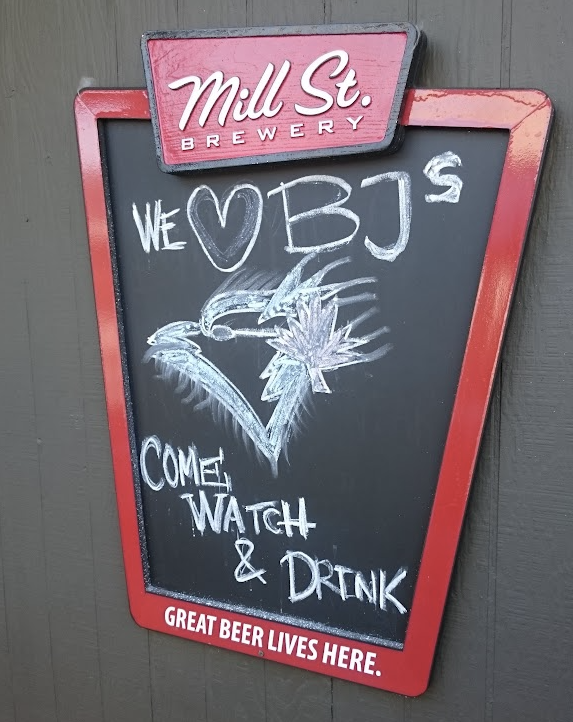 Mill St.
BREWERY
WE ♡ BJS
COME,
WATCH
& DRINK
GREAT BEER LIVES HERE.